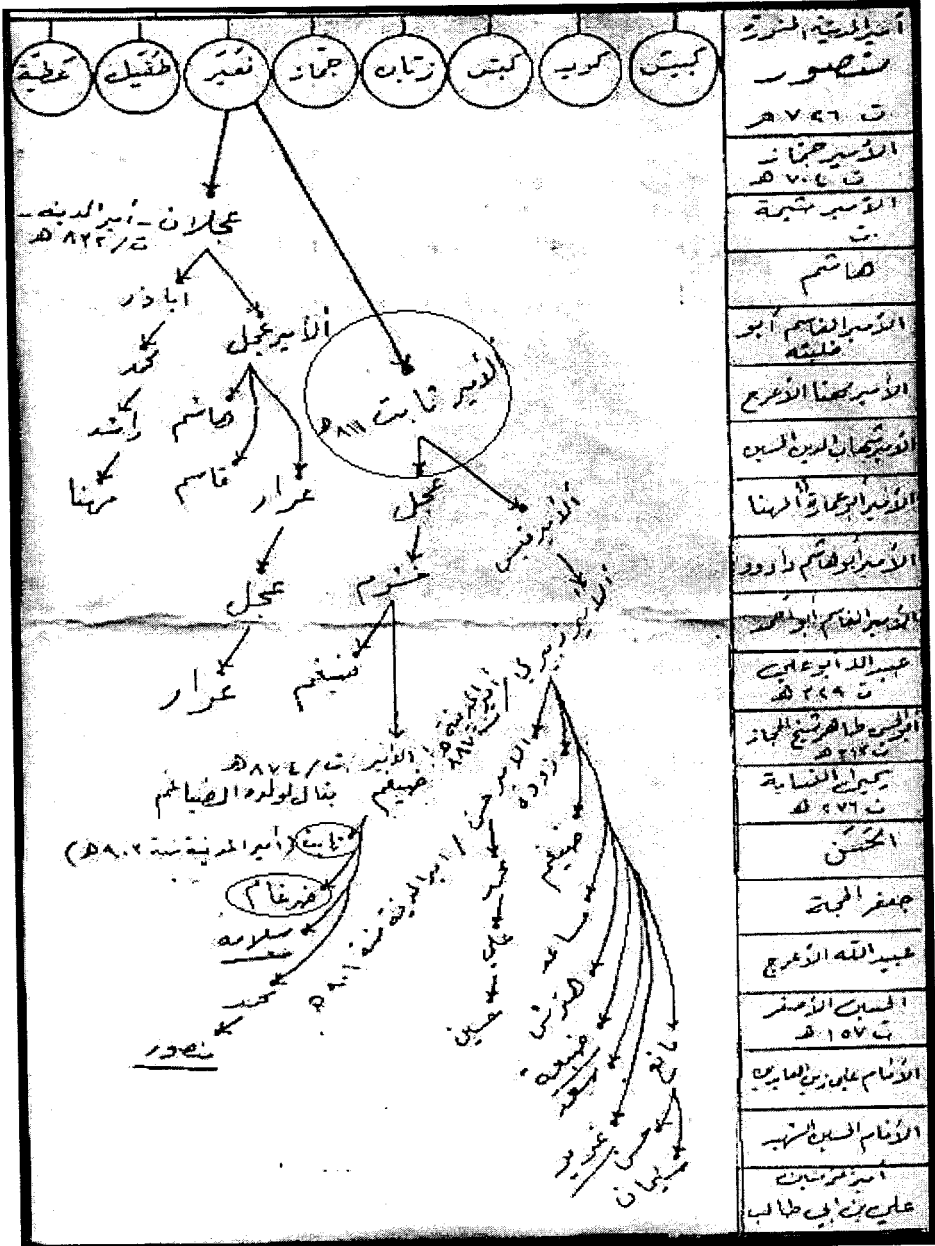 أمير المدينة المنورة
منصور
ت ٧٢٦ هـ
الأمير جماز
ت ٧٠٤ هـ
الأمير شيحة
ت
هاشم
الأمير القاسم أبو
فليته
الأمير مهنا الأعرج
الأمير شهاب الدين الحسين
الأمير أبو عمارة المهنا
الأمير أبو هاشم داوود
الأمير القاسم أبو أحمد
عبيد الله أبو علي
ت ٣٢٩ هـ
أبو الحسن طاهر شيخ الحجاز
ت ٣١٣ هـ
يحيى النسابة
ت ٢٧٦ هـ
الحسن
جعفر الحجة
عبيد الله الأعرج
الحسين الأصغر
ت ١٥٧ هـ
الأمام علي زين العابدين
الأمام الحسين الشهيد
علي بن ابي طالب
كبيش
كوير
كبش
زيان
جماز
نعير
طفيل
عطية
عجلان - أمير المدينه -
ت / ٨٣٢ هـ
اباذر
محمد
راشد
مهنا
الأمير عجل
هاشم
قاسم
عرار
عجل
عرار
الأمير ثابت ٨١١ هـ
عجل
خشرم
ضيغم
الأمير ضيغم
ت / ٨٧٤ هـ
يقال لولده الضياغم
ثابت (أمير المدينة سنة ٩٠٢ هـ)
ضرغام
سلامه
محمد
منصور
الأمير قيس
الأمير زهيري / أمير المدينة
الأمير حسن / أمير المدينة سنة ٩٠١ هـ
حسين
ضيغم
ساعد
مانع
حسن
سليمان